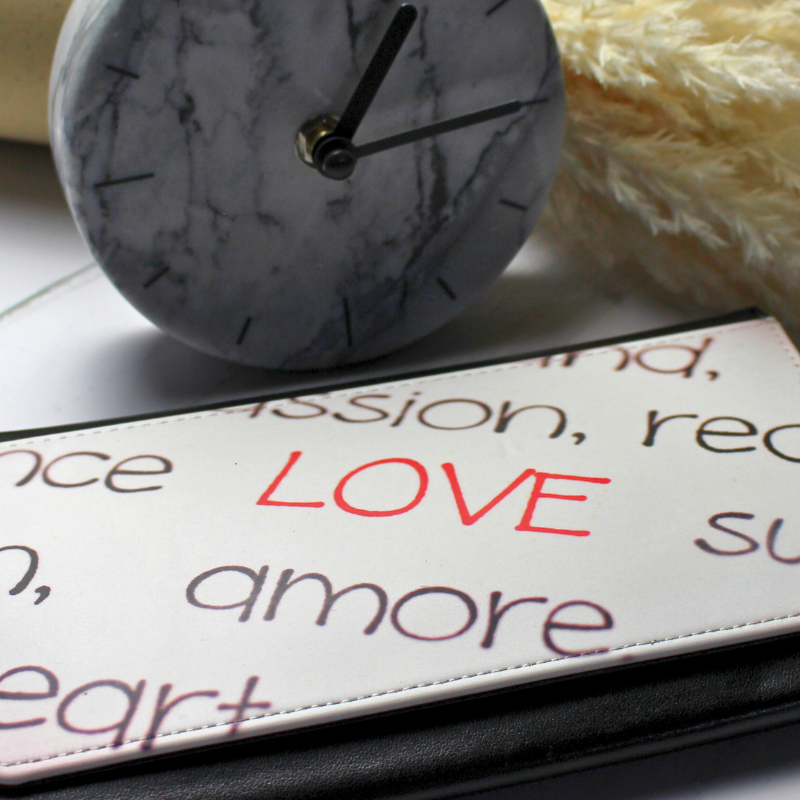 ssion, rec
nce LOVE su
n, amore
eart